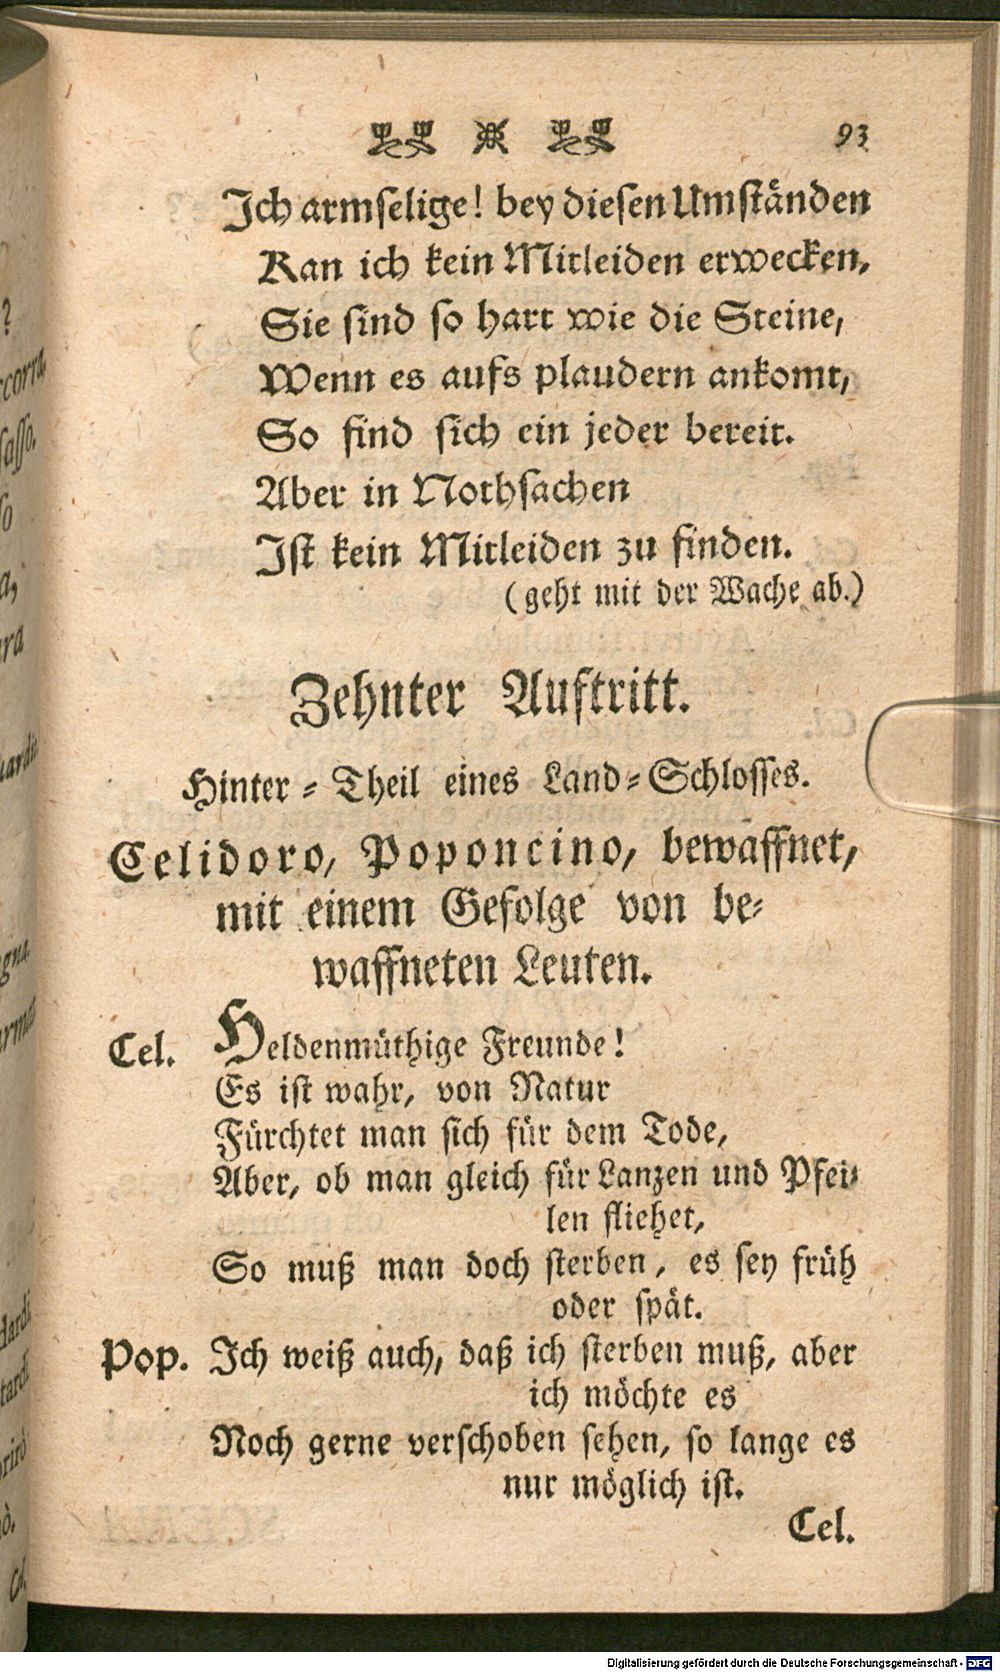 93
Ich armselige! bey diesen Umständen
Kan ich kein Mitleiden erwecken,
Sie sind so hart wie die Steine,
Wenn es aufs plaudern ankomt,
So find sich ein jeder bereit.
Aber in Nothsachen
Ist kein Mitleiden zu finden.
(geht mit der Wache ab.)
Zehnter Auftritt.
Hinter-Theil eines Land-Schlosses.
Celidoro, Poponcino, bewaffnet,
mit einem Gefolge von be-
waffneten Leuten.
Cel. Heldenmüthige Freunde!
Es ist wahr, von Natur
Fürchtet man sich für dem Tode,
Aber, ob man gleich für Lanzen und Pfei-
len fliehet,
So muß man doch sterben, es sey früh
oder spät.
Pop. Ich weiß auch, daß ich sterben muß, aber
ich möchte es
Noch gerne verschoben sehen, so lange es
nur möglich ist.
Cel.
Digitalisierung gefördert durch die Deutsche Forschungsgemeinschaft - DFG